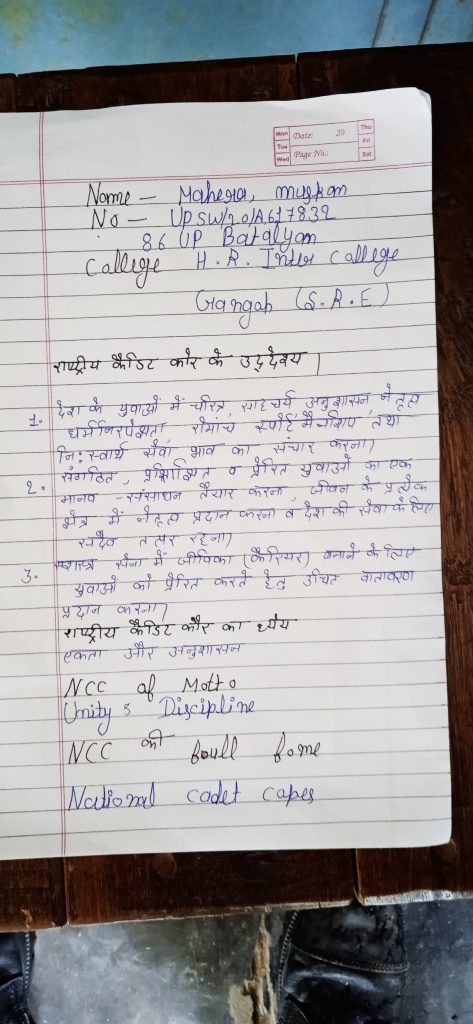 Mon
Tue
Wed
Date: 20
Page No.:
Thu
Fri
Sat
Name - Mahera, muskan
No - UPSW/20/A617832
86 UP Batalyan
College H. R. Inter College
Gangoh (S.R.E)
राष्ट्रीय कैडिट कोर के उद्देश्य |
1. देश के युवाओं में चरित्र, साहचर्य, अनुशासन, नेतृत्व
धर्मनिरपेक्षता, रोमांच स्पोर्ट मैनशिप, तथा
नि:स्वार्थ सेवा भाव का संचार करना।
2. संगठित, प्रशिक्षित व प्रेरित युवाओं का एक
मानव -संसाधन तैयार करना, जीवन के प्रत्येक
क्षेत्र में नेतृत्व प्रदान करना व देश की सेवा के लिए
सदैव तत्पर रहना।
3. सशस्त्र सेना में जीविका (कैरियर) बनाने के लिए
युवाओं को प्रेरित करते हेतु उचित वातावरण
प्रदान करना।
राष्ट्रीय कैडिट कौर का ध्येय
एकता और अनुशासन
NCC of Motto
Unity s Discipline
NCC की foull fome
National cadet capes